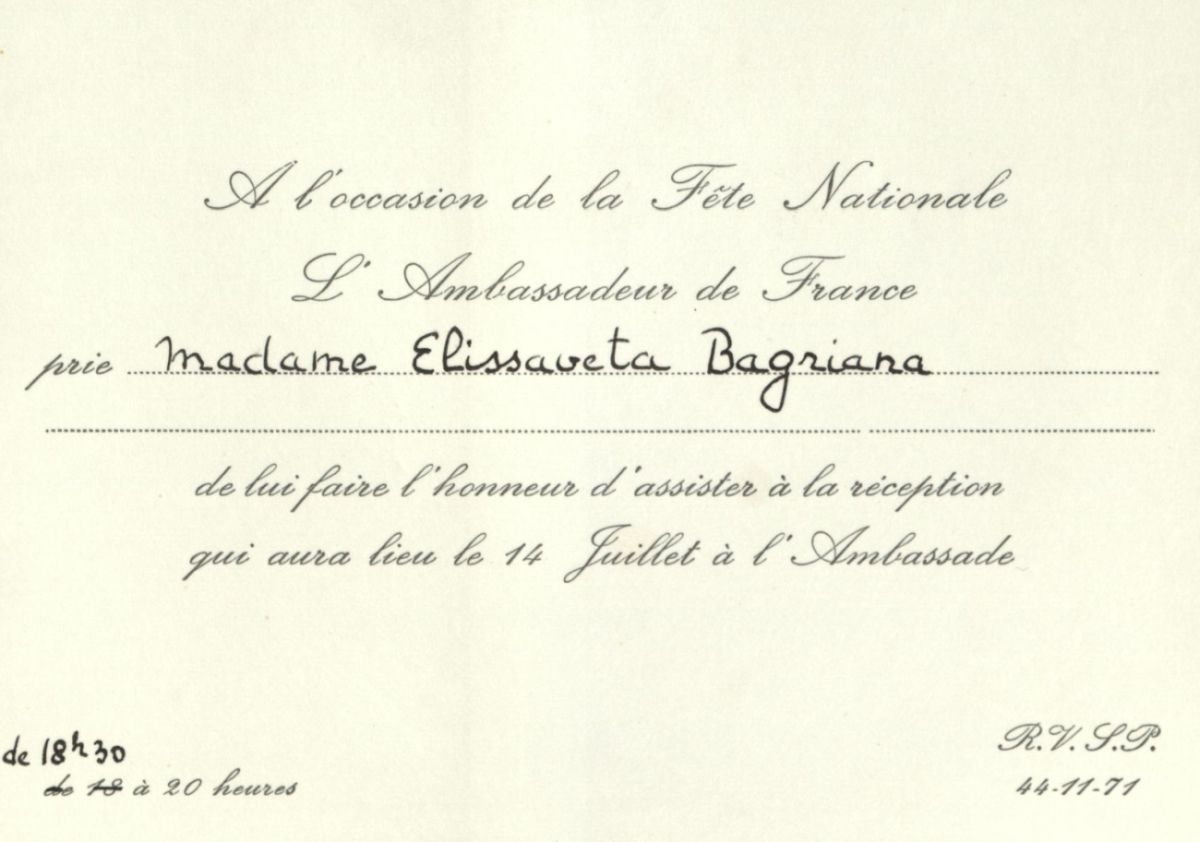 A l'occasion de la Fête Nationale
L'Ambassadeur de France
prie Madame Elissaveta Bagriana
de lui faire l'honneur d'assister à la réception
qui aura lieu le 14 Juillet à l'Ambassade
de 18h30
de 18 à 20 heures
R.V.S.P.
44-11-71